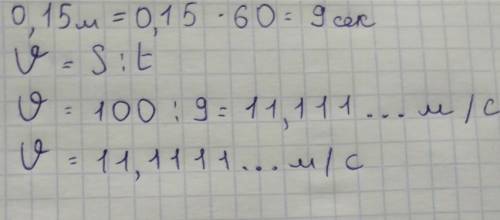 0,15м = 0,15 · 60 = 9 сек
V = S : t
V = 100 : 9 = 11,111... м/с
V = 11,1111... м/с